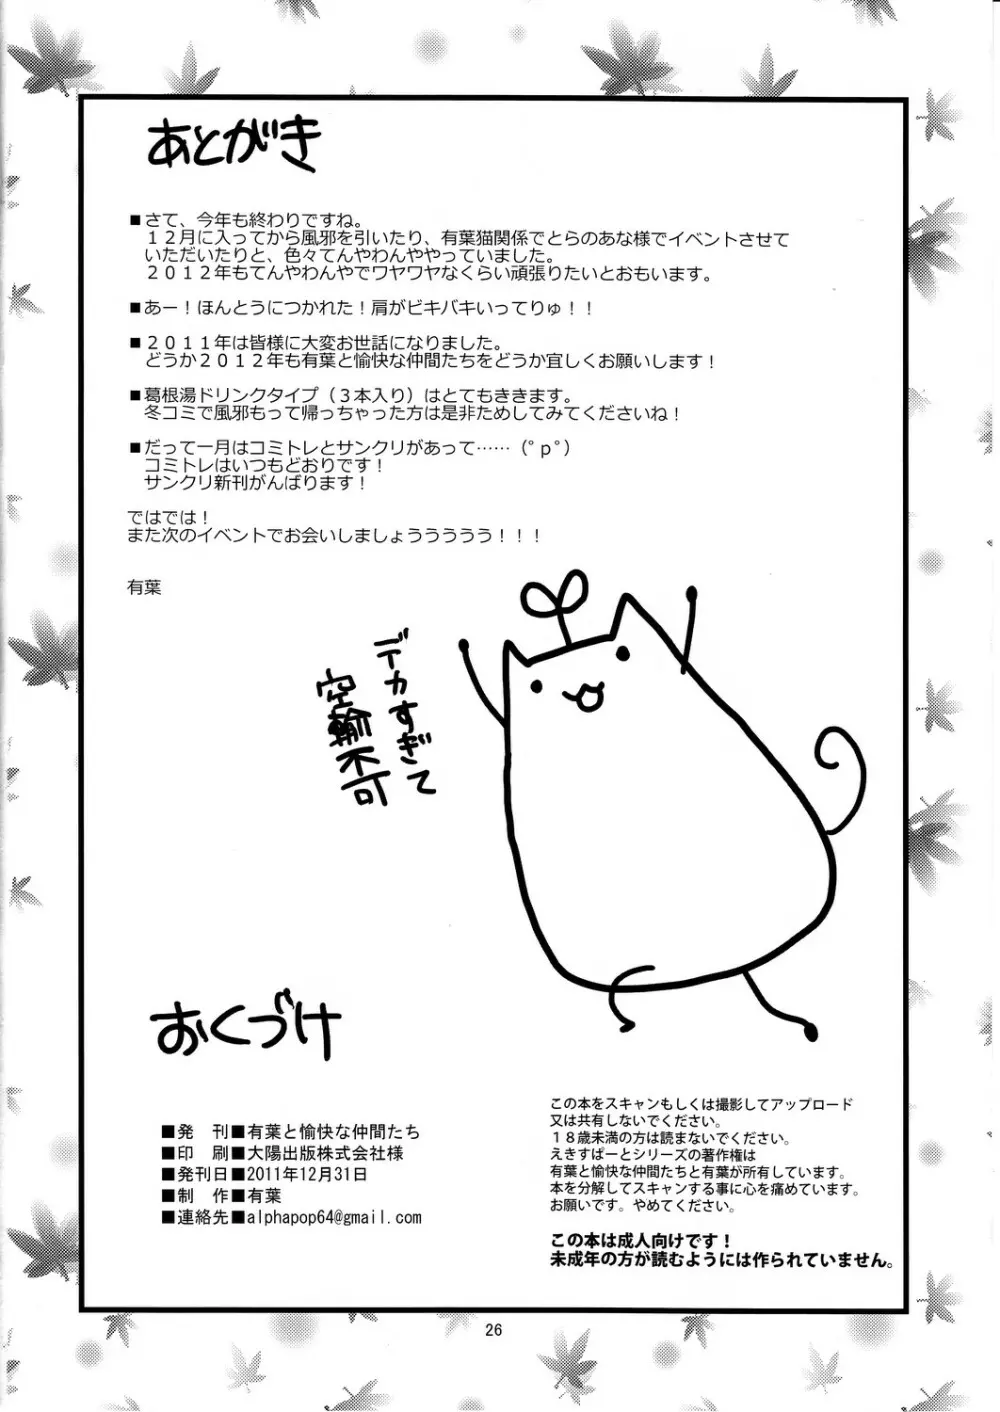 あとがき
■さて、今年も終わりですね。
１２月に入ってから風邪を引いたり、有葉猫関係でとらのあな様でイベントさせて
いただいたりと、色々てんやわんややっていました。
２０１２年もてんやわんやでワヤワヤなくらい頑張りたいとおもいます。
■あー！ほんとうにつかれた！肩がビキバキいってりゅ！！
■２０１１年は皆様に大変お世話になりました。
どうか２０１２年も有葉と愉快な仲間たちをどうか宜しくお願いします！
■葛根湯ドリンクタイプ（３本入り）はとてもききます。
冬コミで風邪もって帰っちゃった方は是非ためしてみてくださいね！
■だって一月はコミトレとサンクリがあって……（ﾟpﾟ）
コミトレはいつもどおりです！
サンクリ新刊がんばります！
ではでは！
また次のイベントでお会いしましょううううう！！！
有葉
デカすぎて
空輸不可
おくづけ
■発　刊■有葉と愉快な仲間たち
■印　刷■大陽出版株式会社様
■発刊日■2011年12月31日
■制　作■有葉
■連絡先■alphapop64@gmail.com
この本をスキャンもしくは撮影してアップロード
又は共有しないでください。
１８歳未満の方は読まないでください。
えきすぱーとシリーズの著作権は
有葉と愉快な仲間たちと有葉が所有しています。
本を分解してスキャンする事に心を痛めています。
お願いです。やめてください。
この本は成人向けです！
未成年の方が読むようには作られていません。
26